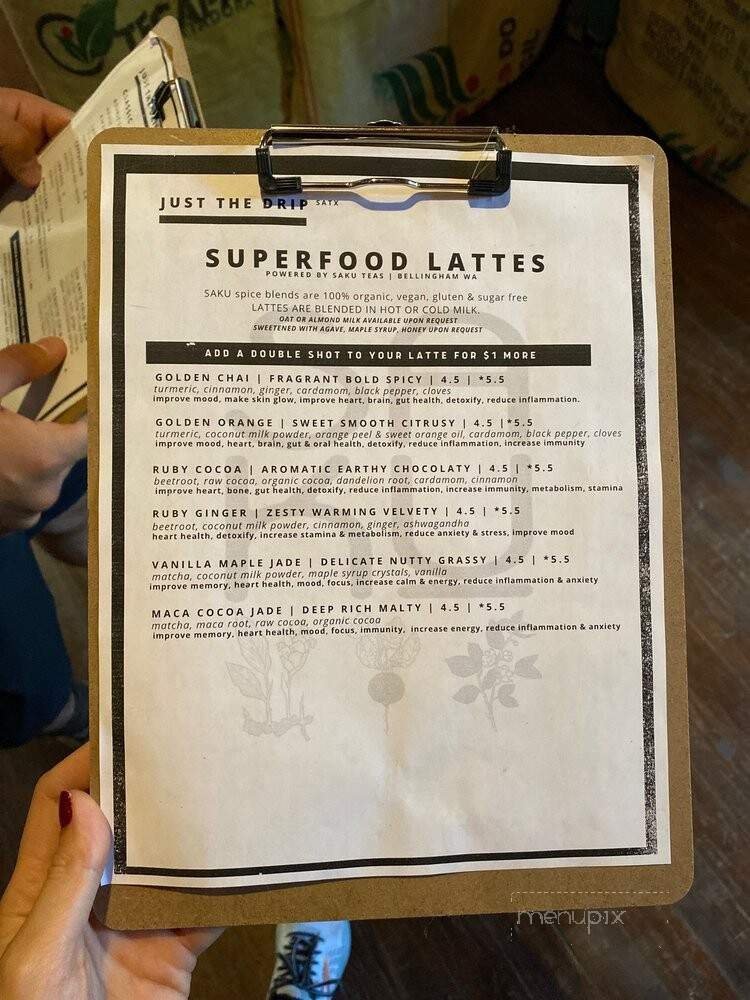 JUST THE DRIP SATX
SUPERFOOD LATTES
POWERED BY SAKU TEAS | BELLINGHAM WA
SAKU spice blends are 100% organic, vegan, gluten & sugar free
LATTES ARE BLENDED IN HOT OR COLD MILK.
OAT OR ALMOND MILK AVAILABLE UPON REQUEST
SWEETENED WITH AGAVE, MAPLE SYRUP, HONEY UPON REQUEST
ADD A DOUBLE SHOT TO YOUR LATTE FOR $1 MORE
GOLDEN CHAI | FRAGRANT BOLD SPICY | 4.5 | *5.5
turmeric, cinnamon, ginger, cardamom, black pepper, cloves
improve mood, make skin glow, improve heart, brain, gut health, detoxify, reduce inflammation.
GOLDEN ORANGE | SWEET SMOOTH CITRUSY | 4.5 |*5.5
turmeric, coconut milk powder, orange peel & sweet orange oil, cardamom, black pepper, cloves
improve mood, heart, brain, gut & oral health, detoxify, reduce inflammation, increase immunity
RUBY COCOA | AROMATIC EARTHY CHOCOLATY | 4.5 | *5.5
beetroot, raw cocoa, organic cocoa, dandelion root, cardamom, cinnamon
improve heart, bone, gut health, detoxify, reduce inflammation, increase immunity, metabolism, stamina
RUBY GINGER | ZESTY WARMING VELVETY | 4.5 | *5.5
beetroot, coconut milk powder, cinnamon, ginger, ashwagandha
heart health, detoxify, increase stamina & metabolism, reduce anxiety & stress, improve mood
VANILLA MAPLE JADE | DELICATE NUTTY GRASSY | 4.5 | *5.5
matcha, coconut milk powder, maple syrup crystals, vanilla
improve memory, heart health, mood, focus, increase calm & energy, reduce inflammation & anxiety
MACA COCOA JADE | DEEP RICH MALTY | 4.5 | *5.5
matcha, maca root, raw cocoa, organic cocoa
improve memory, heart health, mood, focus, immunity, increase energy, reduce inflammation & anxiety
menupix